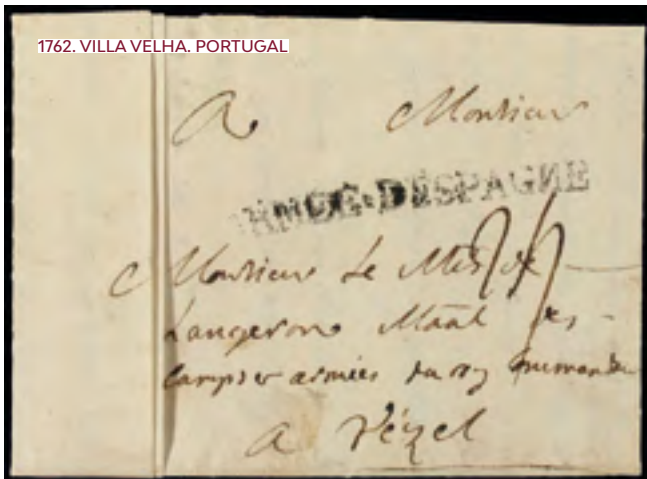 1762. VILLA VELHA. PORTUGAL
A Monsieur
ARMDE·DESPAGNE
Monsieur Le Mis de
Langeron Maal des
camps et armées du roy
a Vézel